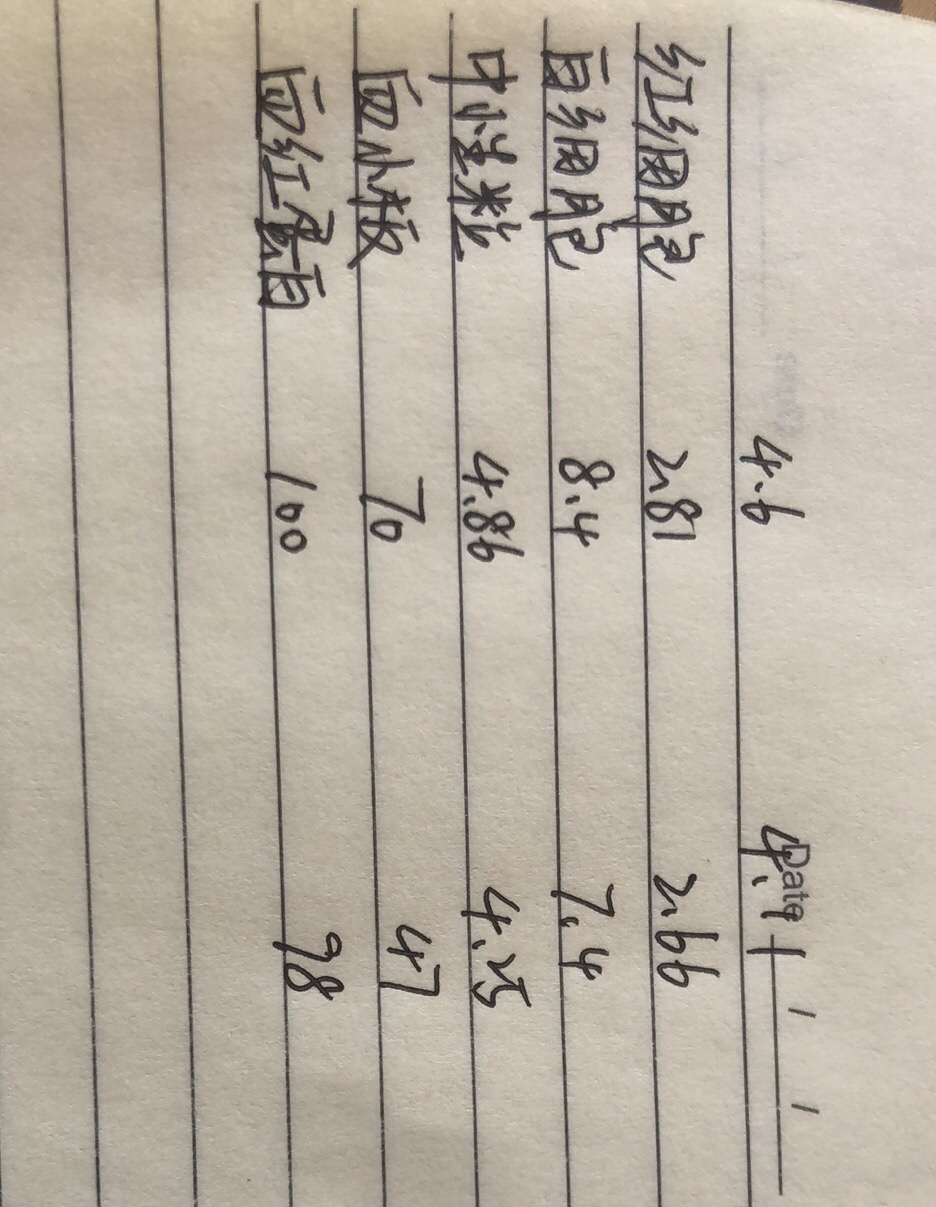 Date / /
4.6 4.11
红细胞 2.81 2.66
白细胞 8.4 7.4
中性粒 4.86 4.25
血小板 70 47
血红蛋白 100 98